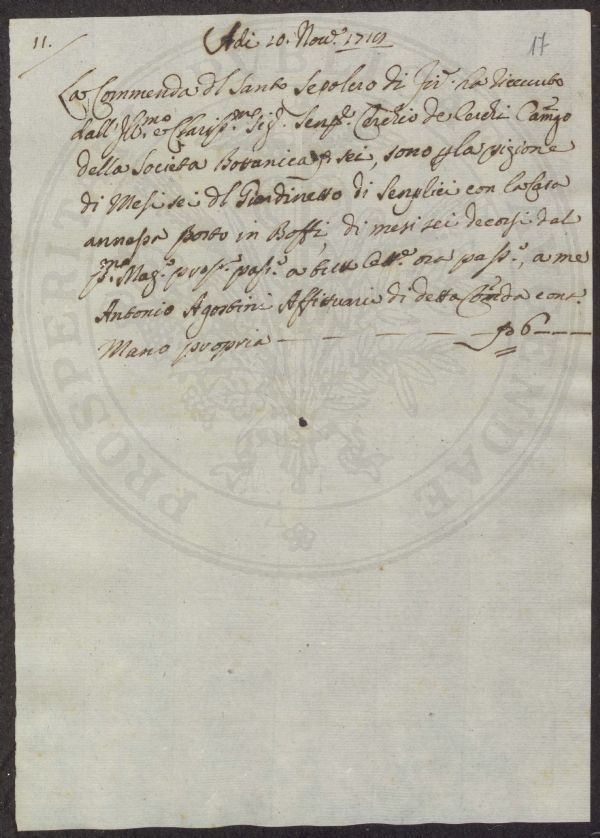 11.
Adi 10. Nov.e 1719
17
La Commenda dl Santo Sepolcro di Fir.e ha riceuuto
dall' Ill.mo e Clariss.mo Sig.r Sen.re Cerchio de Cerchi Camgo
della Società Bottanica sei, sono p la pigione
di Mesi sei dl Giardinetto di Senplici con la Casa
annessa posto in Boffi, di mesi sei decorsi dal
p.mo Mag.o pross.o pass.o a tutt Ott.e ora pass.o, a me
Antonio Agostini Affittuario di detta Comda cont.i
Mano propria — — — — 6 —
PUBLICAE PROSPERITATI AUGENDAE